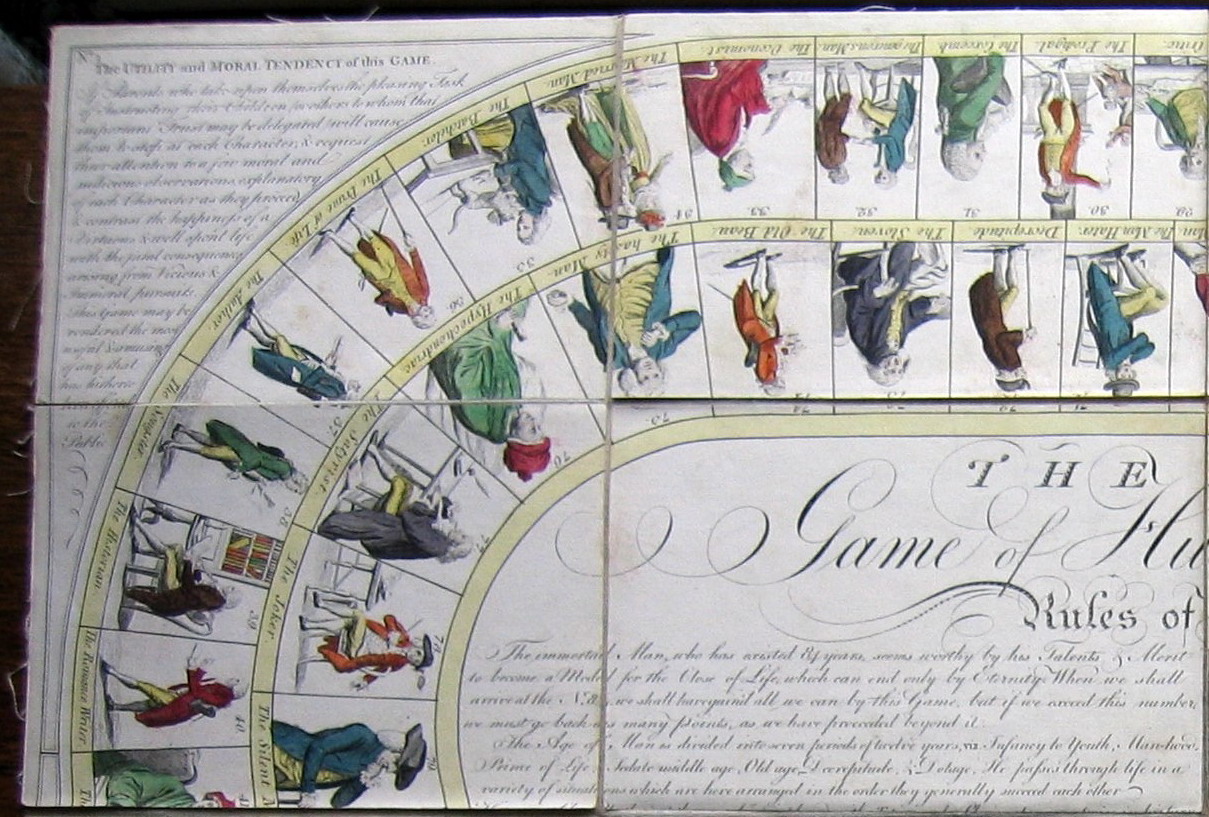 The UTILITY and MORAL TENDENCY of this GAME.
If Parents who take upon themselves the pleasing Task
of Instructing their Children (or others to whom that
important Trust may be delegated) will cause
them to stop at each Character, & request
their attention to a few moral and
judicious observations, explanatory
of each Character as they proceed
& contrast the happiness of a
Virtuous & well spent life
with the fatal consequences
arising from Vicious &
Immoral pursuits.
This Game may be
rendered the most
useful & amusing
of any that
has hitherto
to the
Public
The Married Man.
The Oeconomist.
The Generous Man.
The Coxcomb.
The Prodigal.
34
33.
32.
31.
30.
29
The Batchelor.
35
The Prime of Life.
36
The Author.
37.
The Songster.
38
The Historian.
39
The Romance Writer.
40
41
The happy Man.
The Old Beau.
The Sloven.
Decrepitude.
The Man Hater.
75.
The Hypochondriac.
76
The Satyrist.
77
The Joker.
78
The Silent
79
THE
Game of Hu
Rules of
The immortal Man, who has existed 84 years, seems worthy by his Talents & Merit
to become a Model for the Close of Life, which can end only by Eternity. When we shall
arrive at the No. 84, we shall have gain'd all we can by this Game, but if we exceed this number,
we must go back as many Points, as we have proceeded beyond it.
The Age of Man is divided into seven periods of twelve years, viz. Infancy to Youth, Manhood,
Prime of Life, Sedate middle age, Old age, Decrepitude, & Dotage. He passes through life in a
variety of situations which are here arranged in the order they generally succeed each other